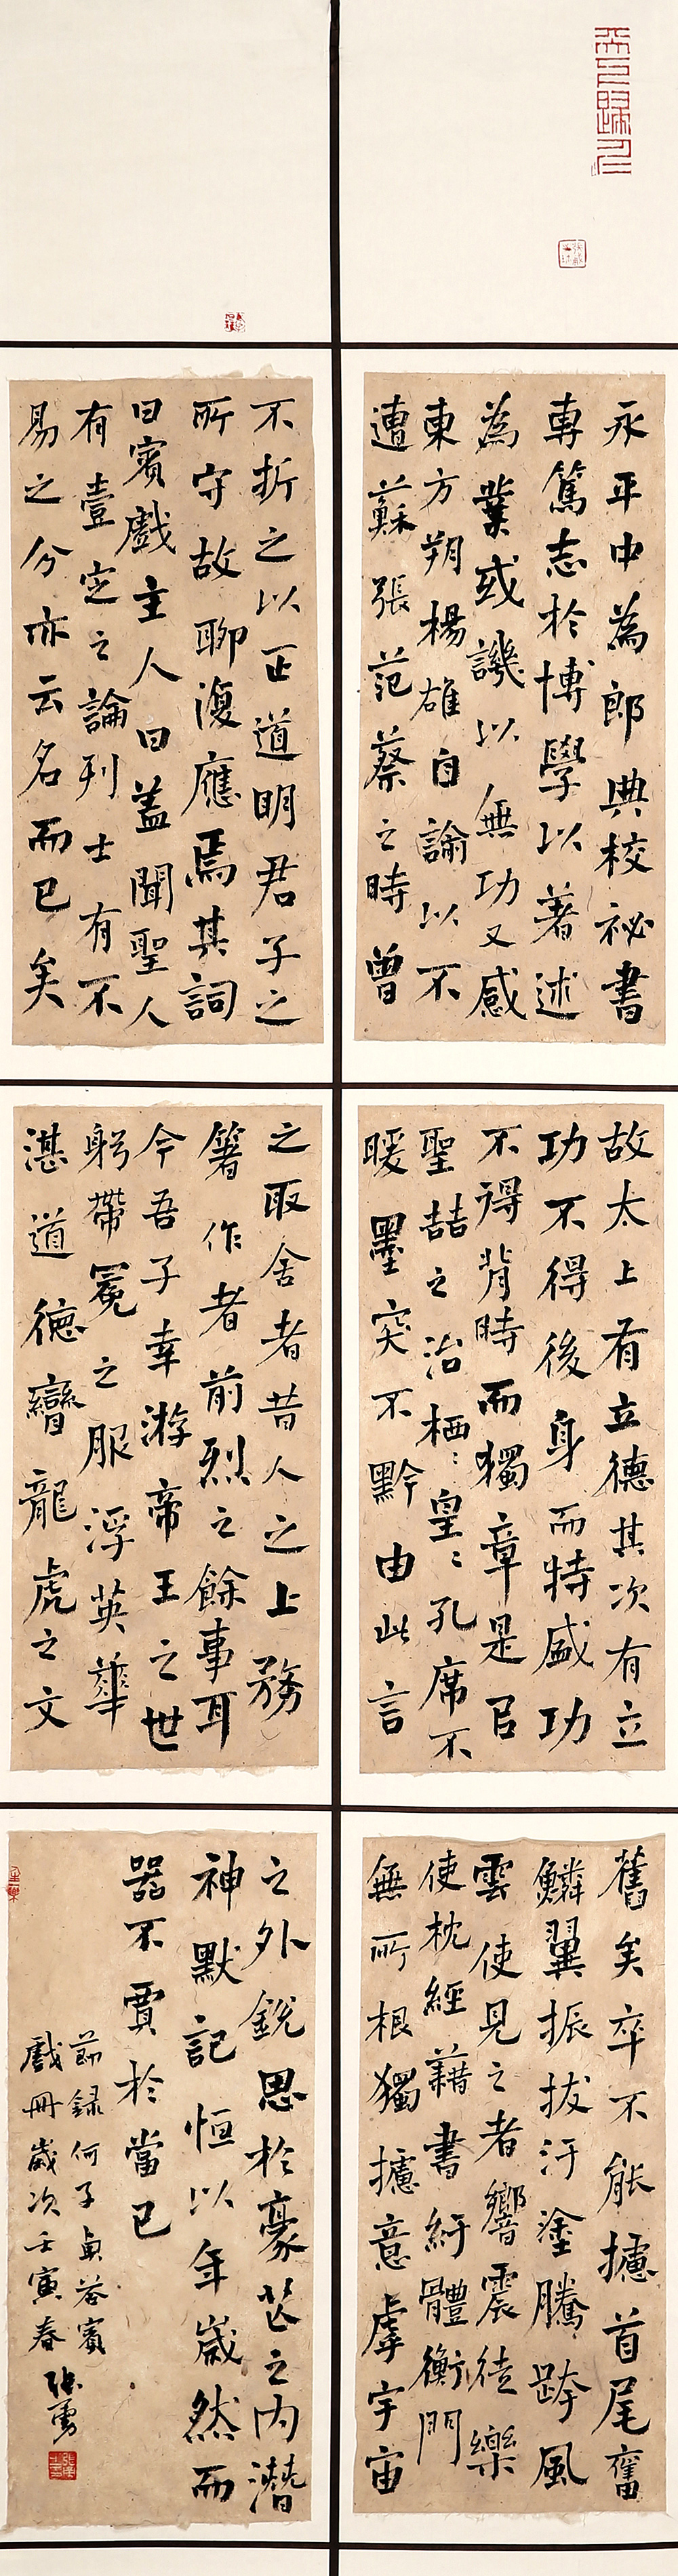 永平中為郎典校祕書
專篤志於博學以著述
為業或譏以無功又感
東方朔楊雄自諭以不
遭蘇張范蔡之時曾
不折之以正道明君子之
所守故聊復應焉其詞
曰賓戲主人曰蓋聞聖人
有壹定之論列士有不
易之分亦云名而已矣
故太上有立德其次有立
功不得後身而特盛功
不得背時而獨章是㠯
聖喆之治栖〻皇〻孔席不
暖墨突不黔由此言
之取舍者昔人之上務
箸作者前烈之餘事耳
今吾子幸游帝王之世
躬帶冕之服浮英華
湛道德矕龍虎之文
舊矣卒不能攄首尾奮
鱗翼振拔汙塗騰跨風
雲使見之者響震徒樂
使枕經藉書紆體衡門
無所根獨攄意虖宇宙
之外銳思於豪芒之內潛
神默記恒以年歲然而
器不賈於當己
節錄何子貞答賓
戲冊歲次壬寅春
張勇